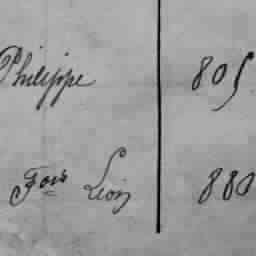 Philippe 805
Fois Léon 880